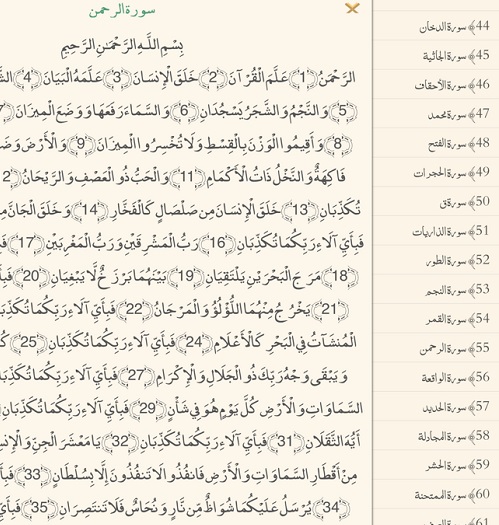 سورة الرحمن
بِسْمِ اللَّهِ الرَّحْمَٰنِ الرَّحِيمِ
الرَّحْمَٰنُ ﴿1﴾ عَلَّمَ الْقُرْآنَ ﴿2﴾ خَلَقَ الْإِنسَانَ ﴿3﴾ عَلَّمَهُ الْبَيَانَ ﴿4﴾
﴿5﴾ وَالنَّجْمُ وَالشَّجَرُ يَسْجُدَانِ ﴿6﴾ وَالسَّمَاءَ رَفَعَهَا وَوَضَعَ الْمِيزَانَ ﴿7
﴿8﴾ وَأَقِيمُوا الْوَزْنَ بِالْقِسْطِ وَلَا تُخْسِرُوا الْمِيزَانَ ﴿9﴾ وَالْأَرْضَ وَضَ
فَاكِهَةٌ وَالنَّخْلُ ذَاتُ الْأَكْمَامِ ﴿11﴾ وَالْحَبُّ ذُو الْعَصْفِ وَالرَّيْحَانُ ﴿2
تُكَذِّبَانِ ﴿13﴾ خَلَقَ الْإِنسَانَ مِن صَلْصَالٍ كَالْفَخَّارِ ﴿14﴾ وَخَلَقَ الْجَانَّ مِ
فَبِأَيِّ آلَاءِ رَبِّكُمَا تُكَذِّبَانِ ﴿16﴾ رَبُّ الْمَشْرِقَيْنِ وَرَبُّ الْمَغْرِبَيْنِ ﴿17﴾ فَ
﴿18﴾ مَرَجَ الْبَحْرَيْنِ يَلْتَقِيَانِ ﴿19﴾ بَيْنَهُمَا بَرْزَخٌ لَّا يَبْغِيَانِ ﴿20﴾ فَبِأَ
﴿21﴾ يَخْرُجُ مِنْهُمَا اللُّؤْلُؤُ وَالْمَرْجَانُ ﴿22﴾ فَبِأَيِّ آلَاءِ رَبِّكُمَا تُكَذِّبَا
الْمُنشَآتُ فِي الْبَحْرِ كَالْأَعْلَامِ ﴿24﴾ فَبِأَيِّ آلَاءِ رَبِّكُمَا تُكَذِّبَانِ ﴿25﴾ كُ
وَيَبْقَى وَجْهُ رَبِّكَ ذُو الْجَلَالِ وَالْإِكْرَامِ ﴿27﴾ فَبِأَيِّ آلَاءِ رَبِّكُمَا تُكَذِّبَا
السَّمَاوَاتِ وَالْأَرْضِ كُلَّ يَوْمٍ هُوَ فِي شَأْنٍ ﴿29﴾ فَبِأَيِّ آلَاءِ رَبِّكُمَا تُكَذِّبَانِ
أَيُّهَ الثَّقَلَانِ ﴿31﴾ فَبِأَيِّ آلَاءِ رَبِّكُمَا تُكَذِّبَانِ ﴿32﴾ يَا مَعْشَرَ الْجِنِّ وَالْإِنسِ
مِنْ أَقْطَارِ السَّمَاوَاتِ وَالْأَرْضِ فَانفُذُوا لَا تَنفُذُونَ إِلَّا بِسُلْطَانٍ ﴿33﴾ فَبِأَ
﴿34﴾ يُرْسَلُ عَلَيْكُمَا شُوَاظٌ مِّن نَّارٍ وَنُحَاسٌ فَلَا تَنتَصِرَانِ ﴿35﴾ فَبِأَيِّ
44﴾ سورة الدخان
45﴾ سورة الجاثية
46﴾ سورة الأحقاف
47﴾ سورة محمد
48﴾ سورة الفتح
49﴾ سورة الحجرات
50﴾ سورة ق
51﴾ سورة الذاريات
52﴾ سورة الطور
53﴾ سورة النجم
54﴾ سورة القمر
55﴾ سورة الرحمن
56﴾ سورة الواقعة
57﴾ سورة الحديد
58﴾ سورة المجادلة
59﴾ سورة الحشر
60﴾ سورة الممتحنة
61﴾